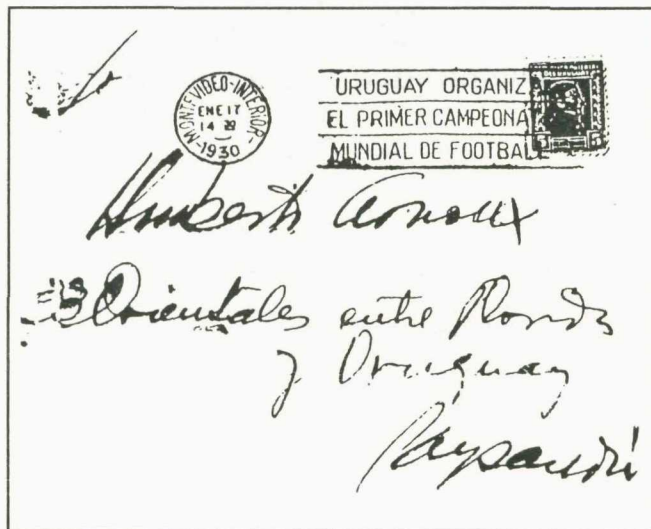 MONTEVIDEO-INTERIOR
ENE 17
14
1930
URUGUAY ORGANIZ
EL PRIMER CAMPEONA
MUNDIAL DE FOOTBALL
Humberto
33 Orientales entre
y Uruguay
Paysandú